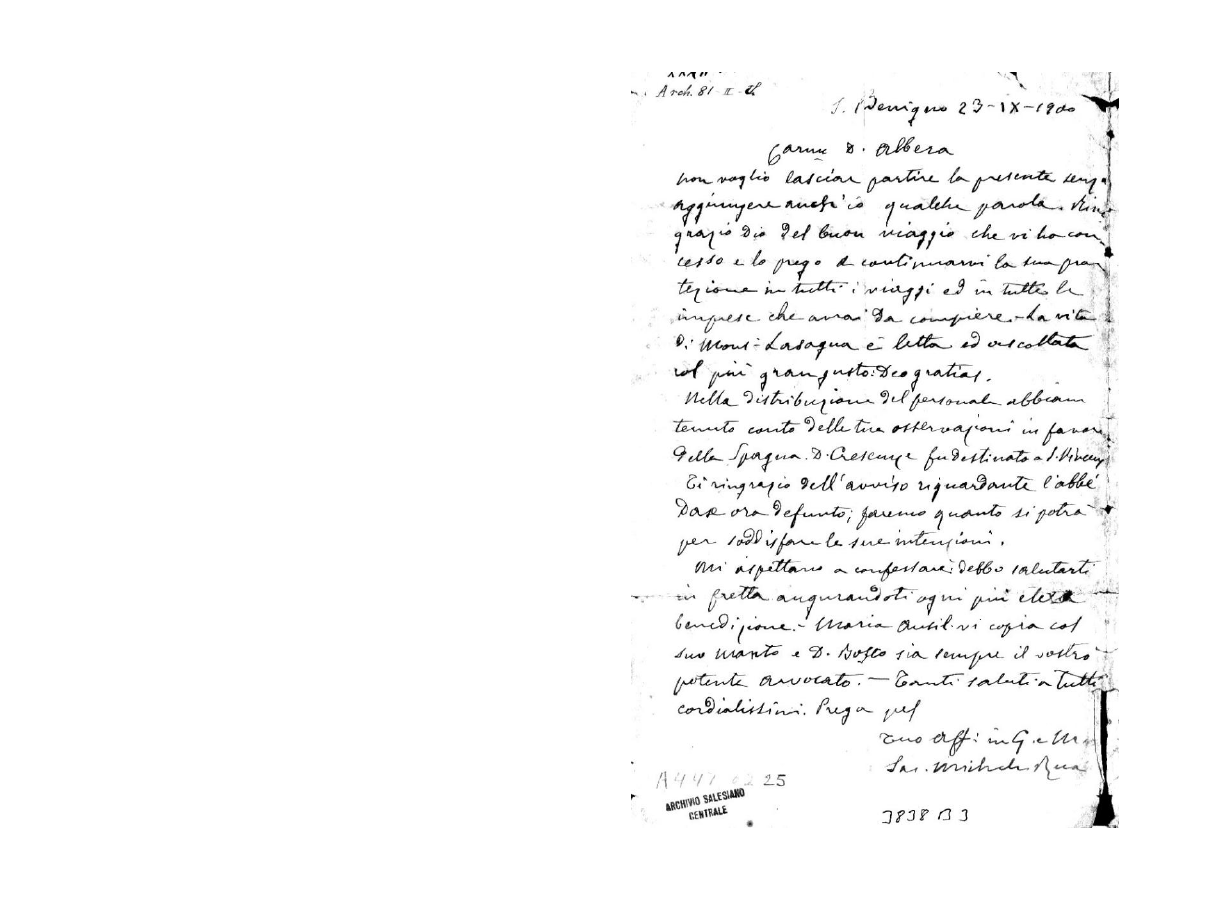 Arch. 81 - II -
S. Benigno 23-IX-1900
Carmo D. Albera
non voglio lasciar partire la presente senza
aggiungere anch'io qualche parola. Rin
grazio Dio del buon viaggio che vi ha con
cesso e lo prego a continuarvi la sua pro
tezione in tutti i viaggi ed in tutte le
imprese che avrai da compiere. La vita
di Mons. Lasagna è letta ed ascoltata
col più gran gusto: Deo gratias.
Nella distribuzione del personale abbiam
tenuto conto delle tue osservazioni in favore
della Spagna. D. Crescenzi fu destinato a S. Vincenz
Ti ringrazio dell'avviso riguardante l'abbé
ora defunto; faremo quanto si potrà
per soddisfare le sue intenzioni.
Mi aspettano a confessare: debbo salutarti
in fretta augurandoti ogni più eletta
benedizione. - Maria Ausil. vi copra col
suo manto e D. Bosco sia sempre il vostro
potente avvocato. - Tanti saluti a tutti
cordialissimi. Prega pel
Tuo Aff. in G. e M
Sac. Michele Rua
A447 02 25
ARCHIVIO SALESIANO
CENTRALE
3838 B 3